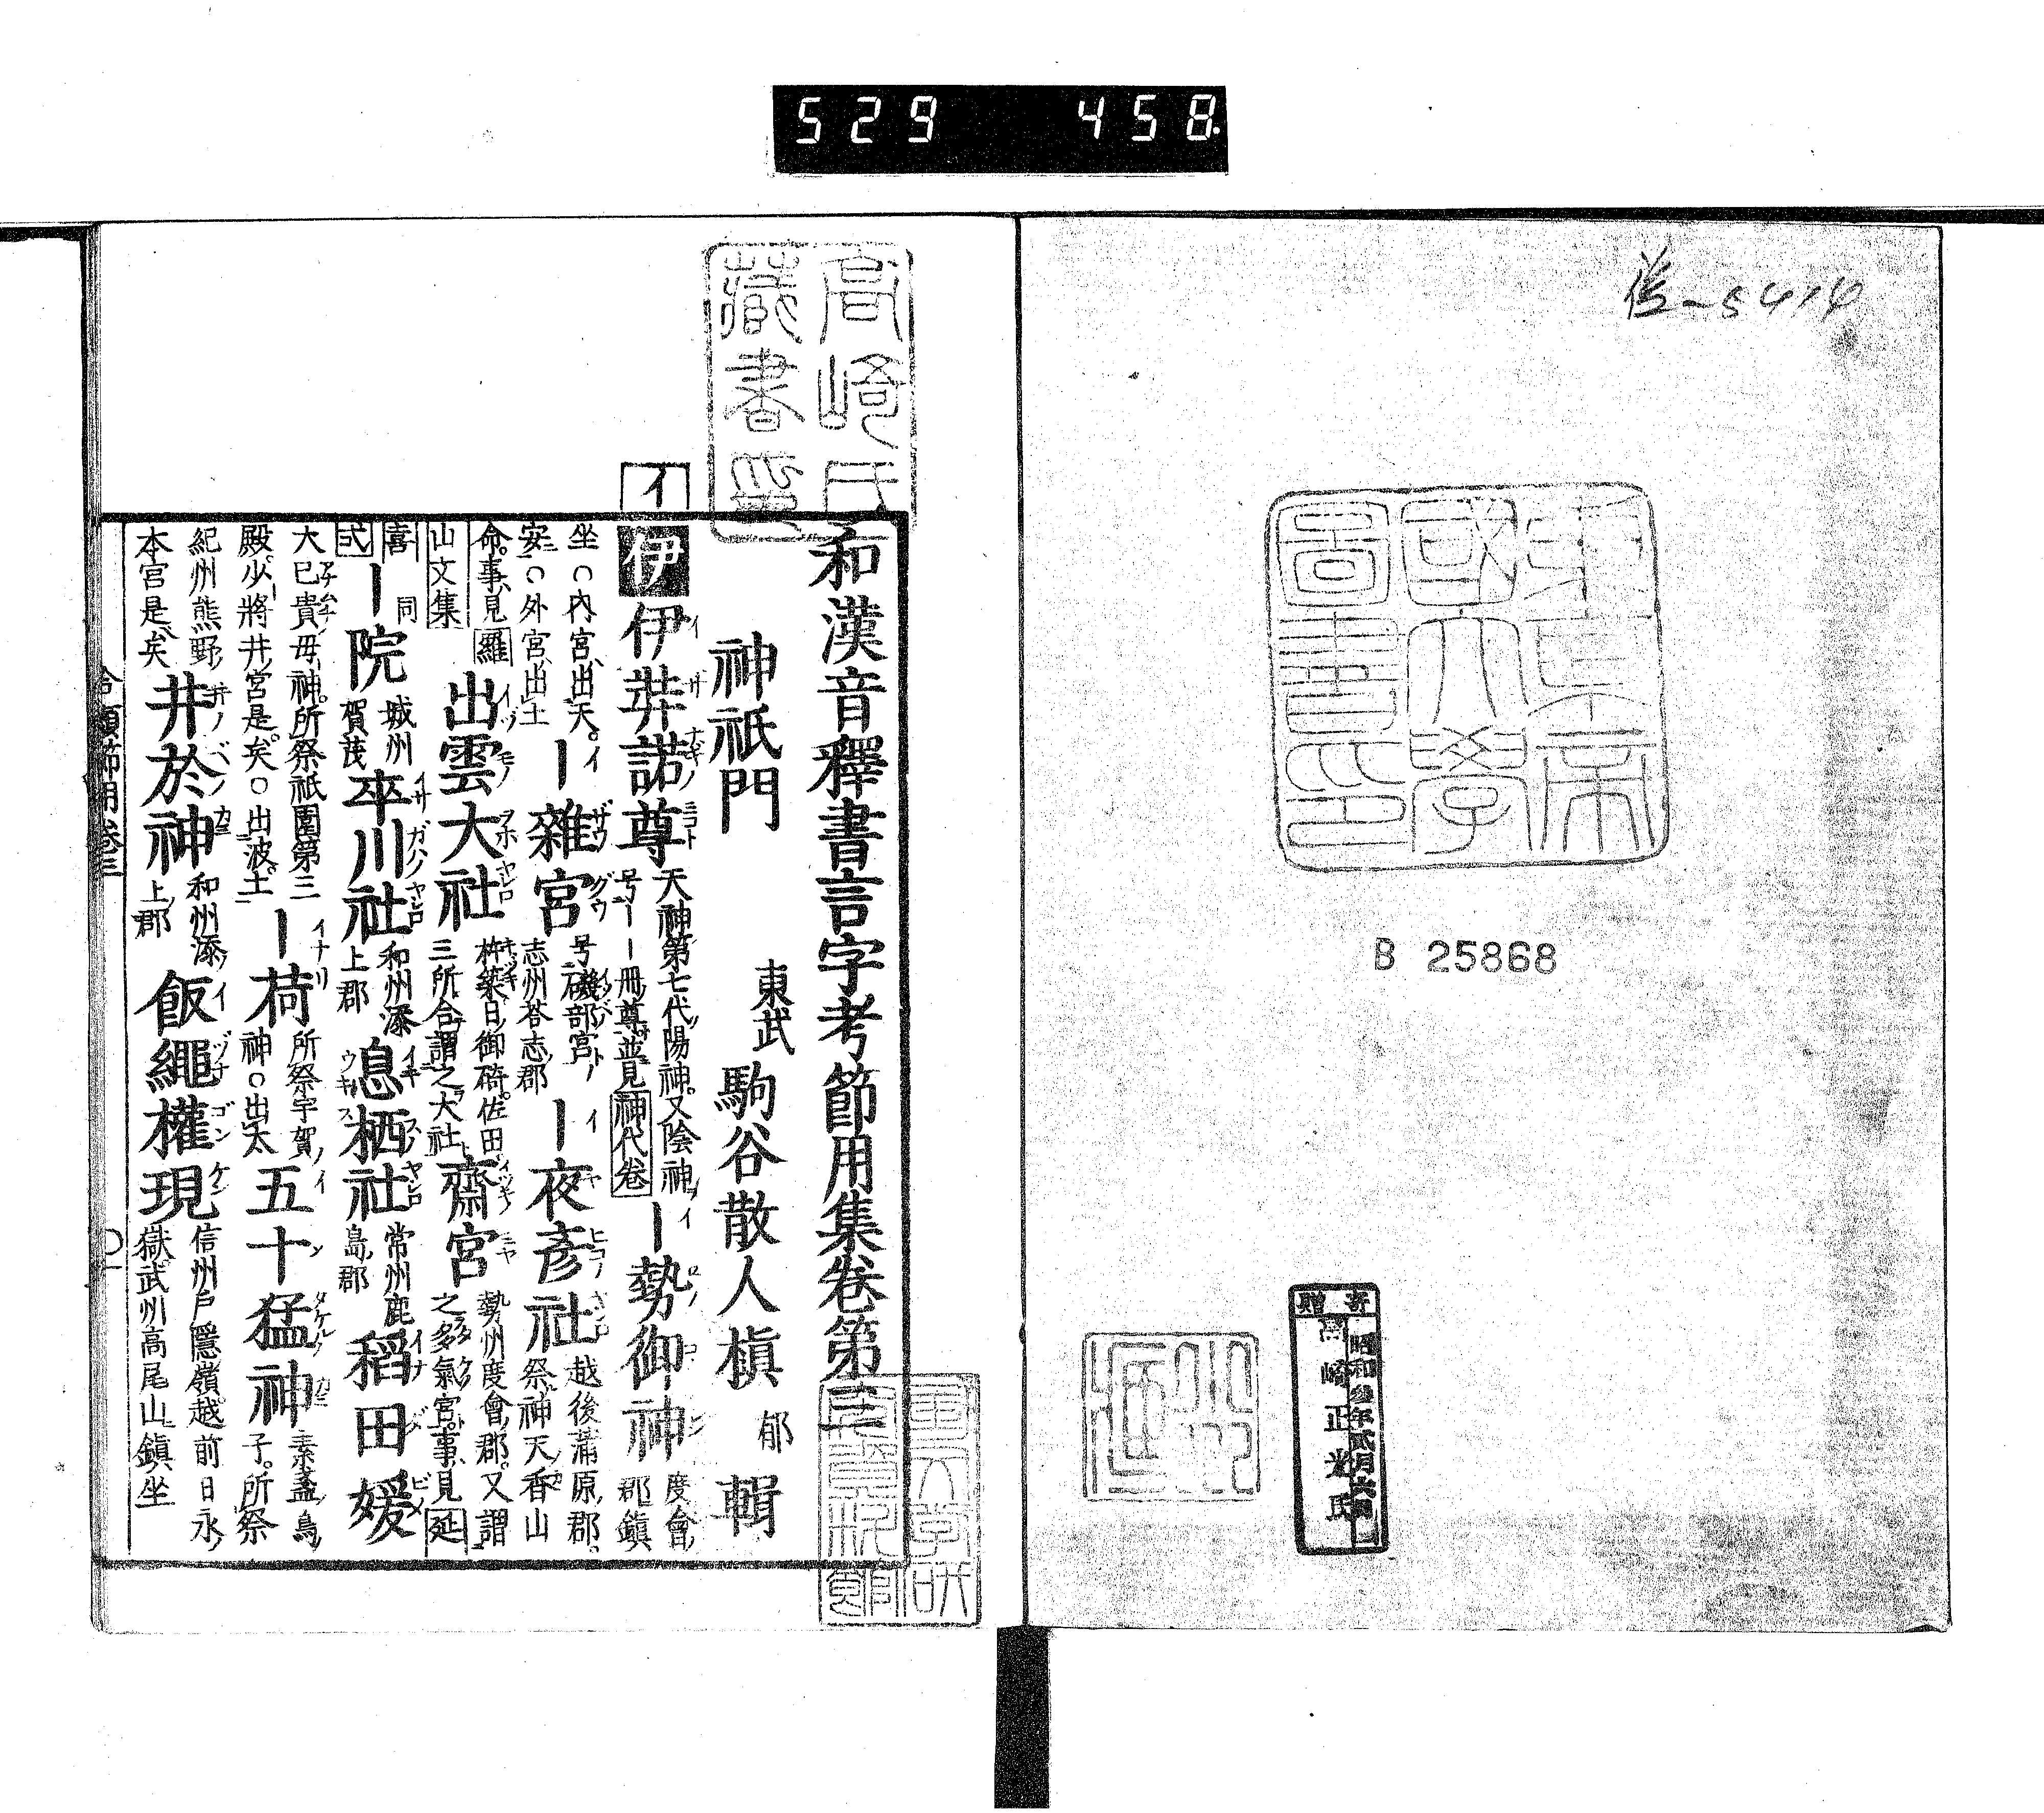 529 458
B 25868
寄贈
高崎正光氏
東京帝國大學圖書印
高崎氏藏書印
和漢音釋書言字考節用集卷第三
神祇門
東武 駒谷散人槇 郁 輯
イ
伊 伊弉諾尊 天神第七代陽神。又陰神号――冊尊並見神代卷 ―勢御神 度會郡鎮
坐○內宮出天。安○外宮出土 ―雜宮 号磯部宮志州答志郡 ―夜彥社 越後蒲原郡祭神天香山
命。事見羅山文集 出雲大社 杵築日御碕佐田三所合謂之大社 齋宮 勢州度會郡。又謂之多氣宮。事見延
喜式 ―院 同城州賀茂 卒川社 和州添上郡 息栖社 常州鹿島郡 稻田媛
大已貴毋神。所祭祇園第三殿。少將井宮是矣。○出波土 ―荷 所祭宇賀神○出太 五十猛神 素盞烏子。所祭
紀州熊野本宮是矣 井於神 和州添上郡 飯繩權現 信州戶隱嶺越前日永嶽武州高尾山鎮坐